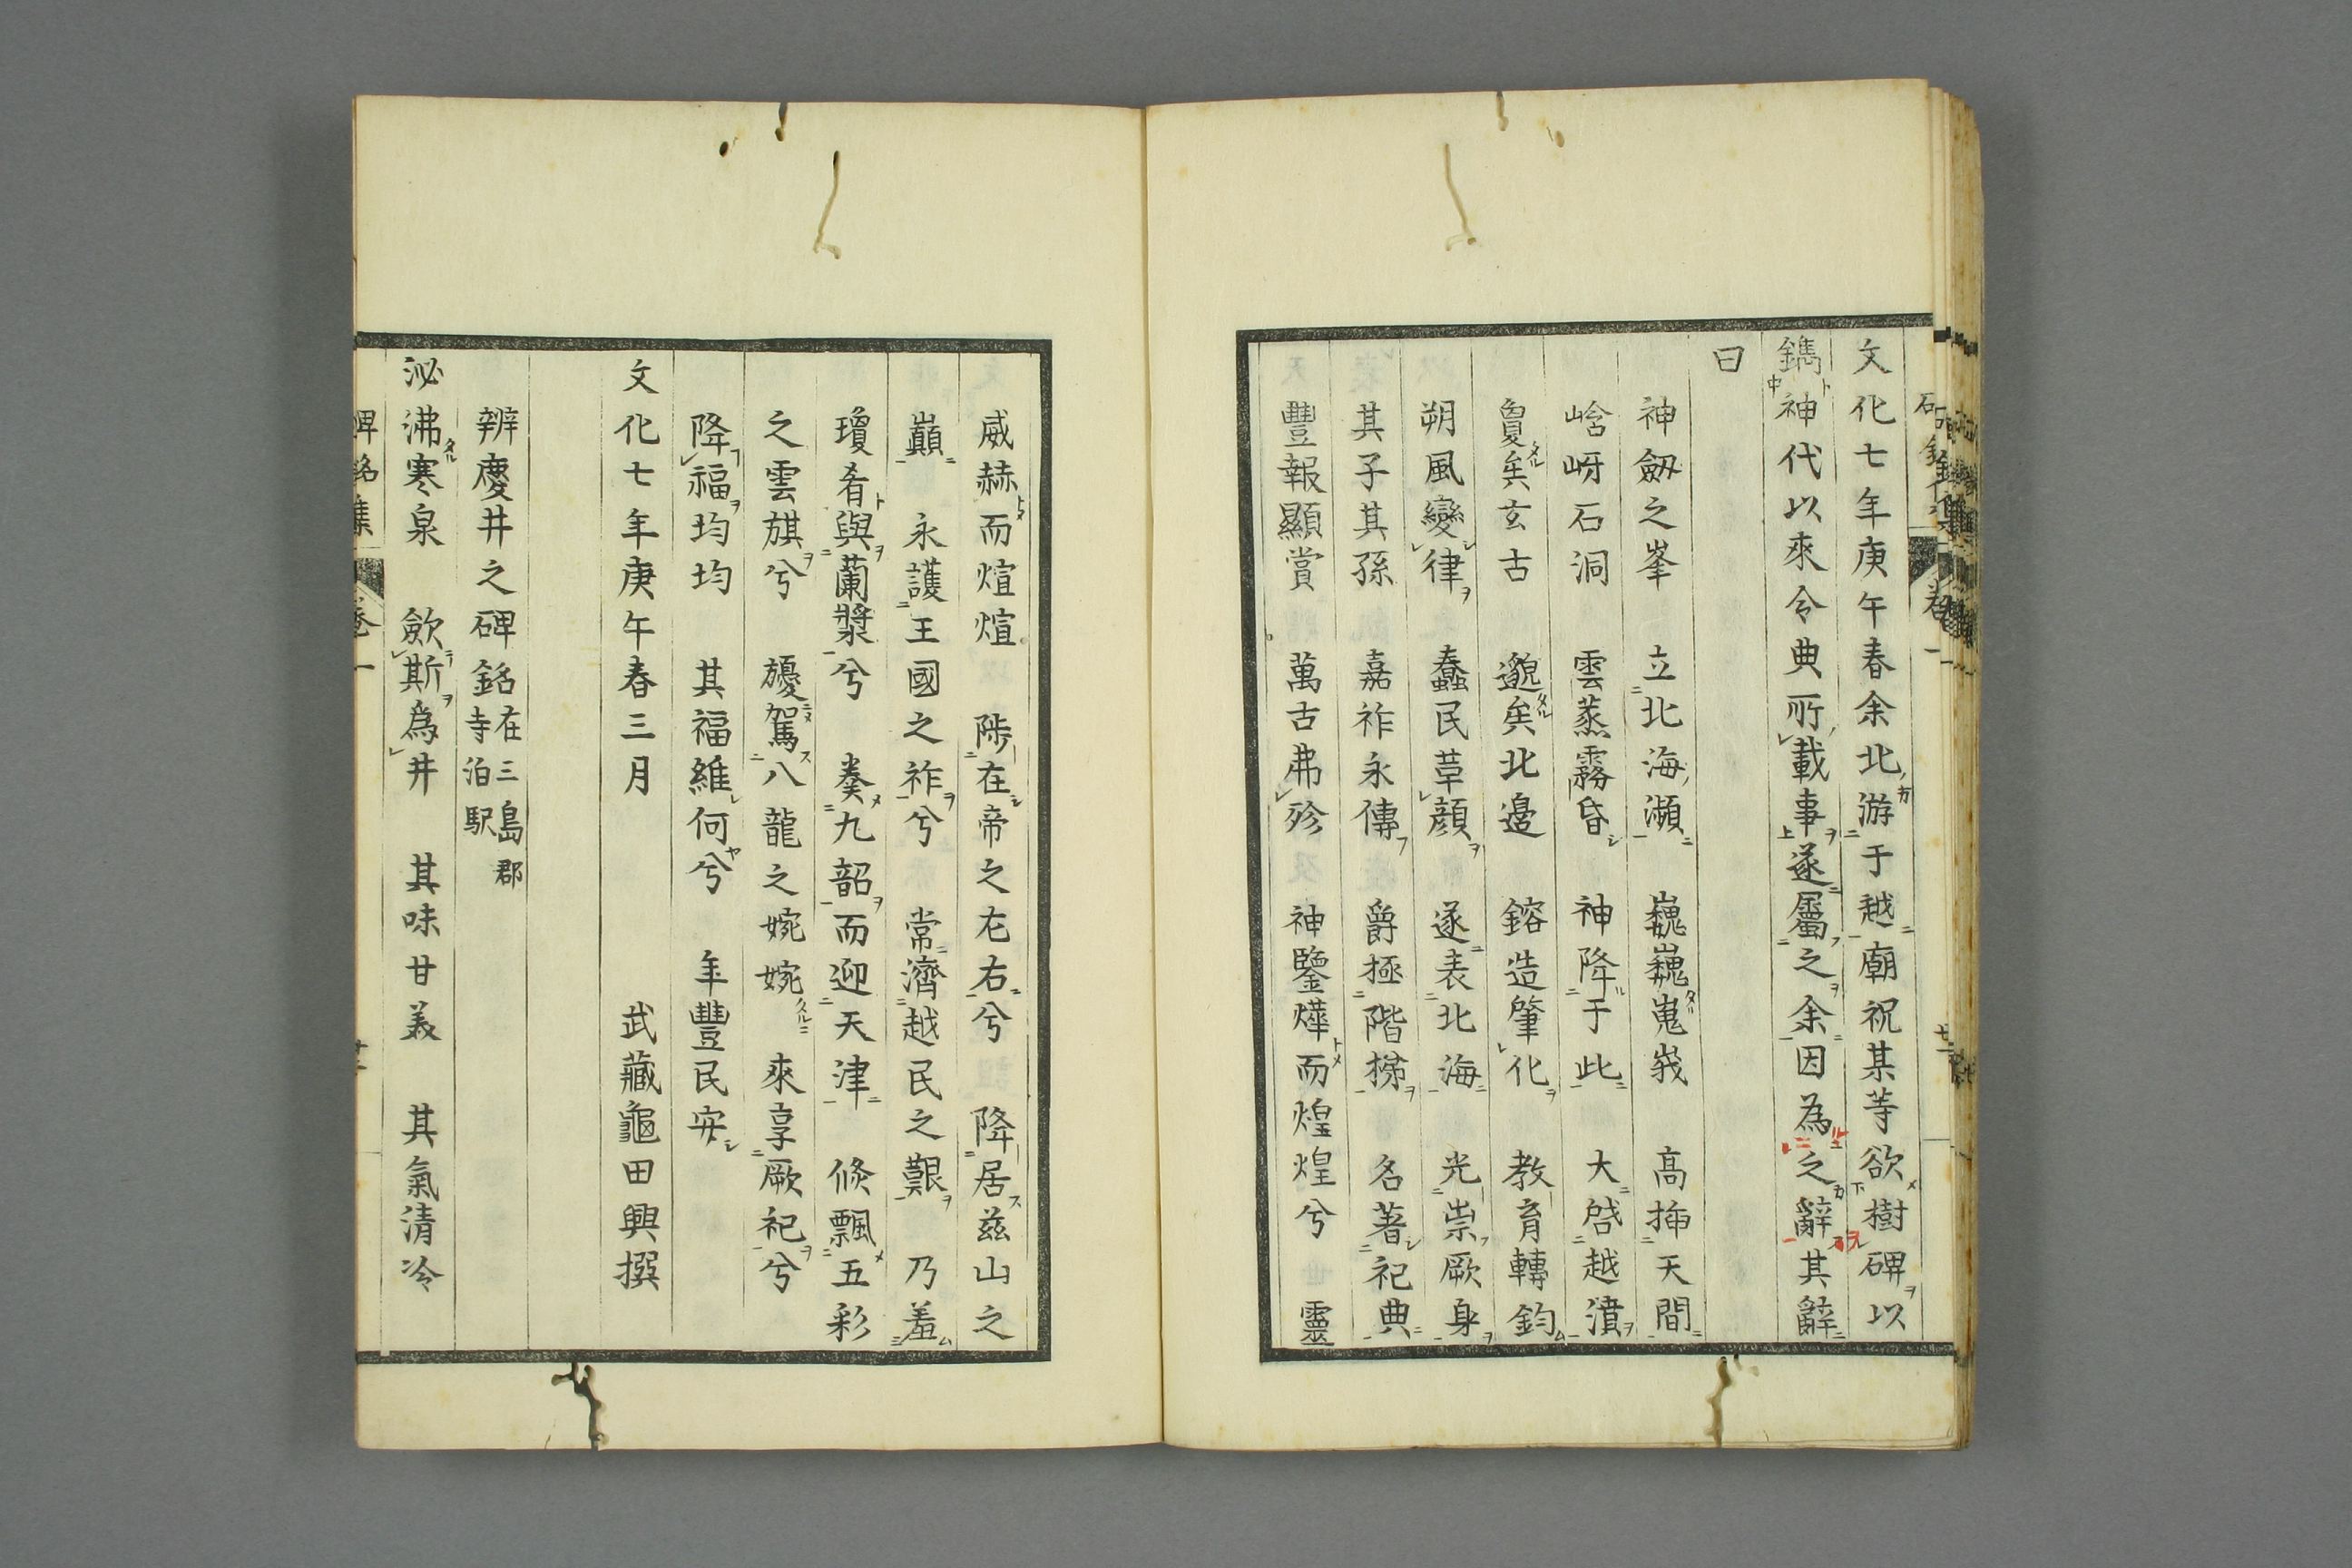 文化七年庚午春余北游于越廟祝某等欲樹碑以
鐫神代以來令典所載事遂屬之余因為之辭其辭
曰
神劔之峯　立北海瀕　巍巍嵬峩　高揷天間
崄岈石洞　雲蒸霧昏　神降于此　大啓越濆
敻矣玄古　邈矣北邊　鎔造肇化　教育轉鈞
朔風變律　蠢民草顔　遂表北海　光崇厥身
其子其孫　嘉祚永傳　爵極階梯　名著祀典
豐報顯賞　萬古弗殄　神鑒燁而煌煌兮　靈
威赫而煊煊　陟在帝之左右兮　降居茲山之
巓　永護王國之祚兮　常濟越民之艱　乃羞
瓊肴與蘭漿兮　奏九韶而迎天津　倏飄五彩
之雲旗兮　擾駕八龍之婉婉　來享厥祀兮
降福均均　其福維何兮　年豐民安
文化七年庚午春三月　武藏龜田興撰
辨慶井之碑銘在三島郡寺泊駅
泌沸寒泉　斂斯爲井　其味甘美　其氣清冷
碑銘集　卷一